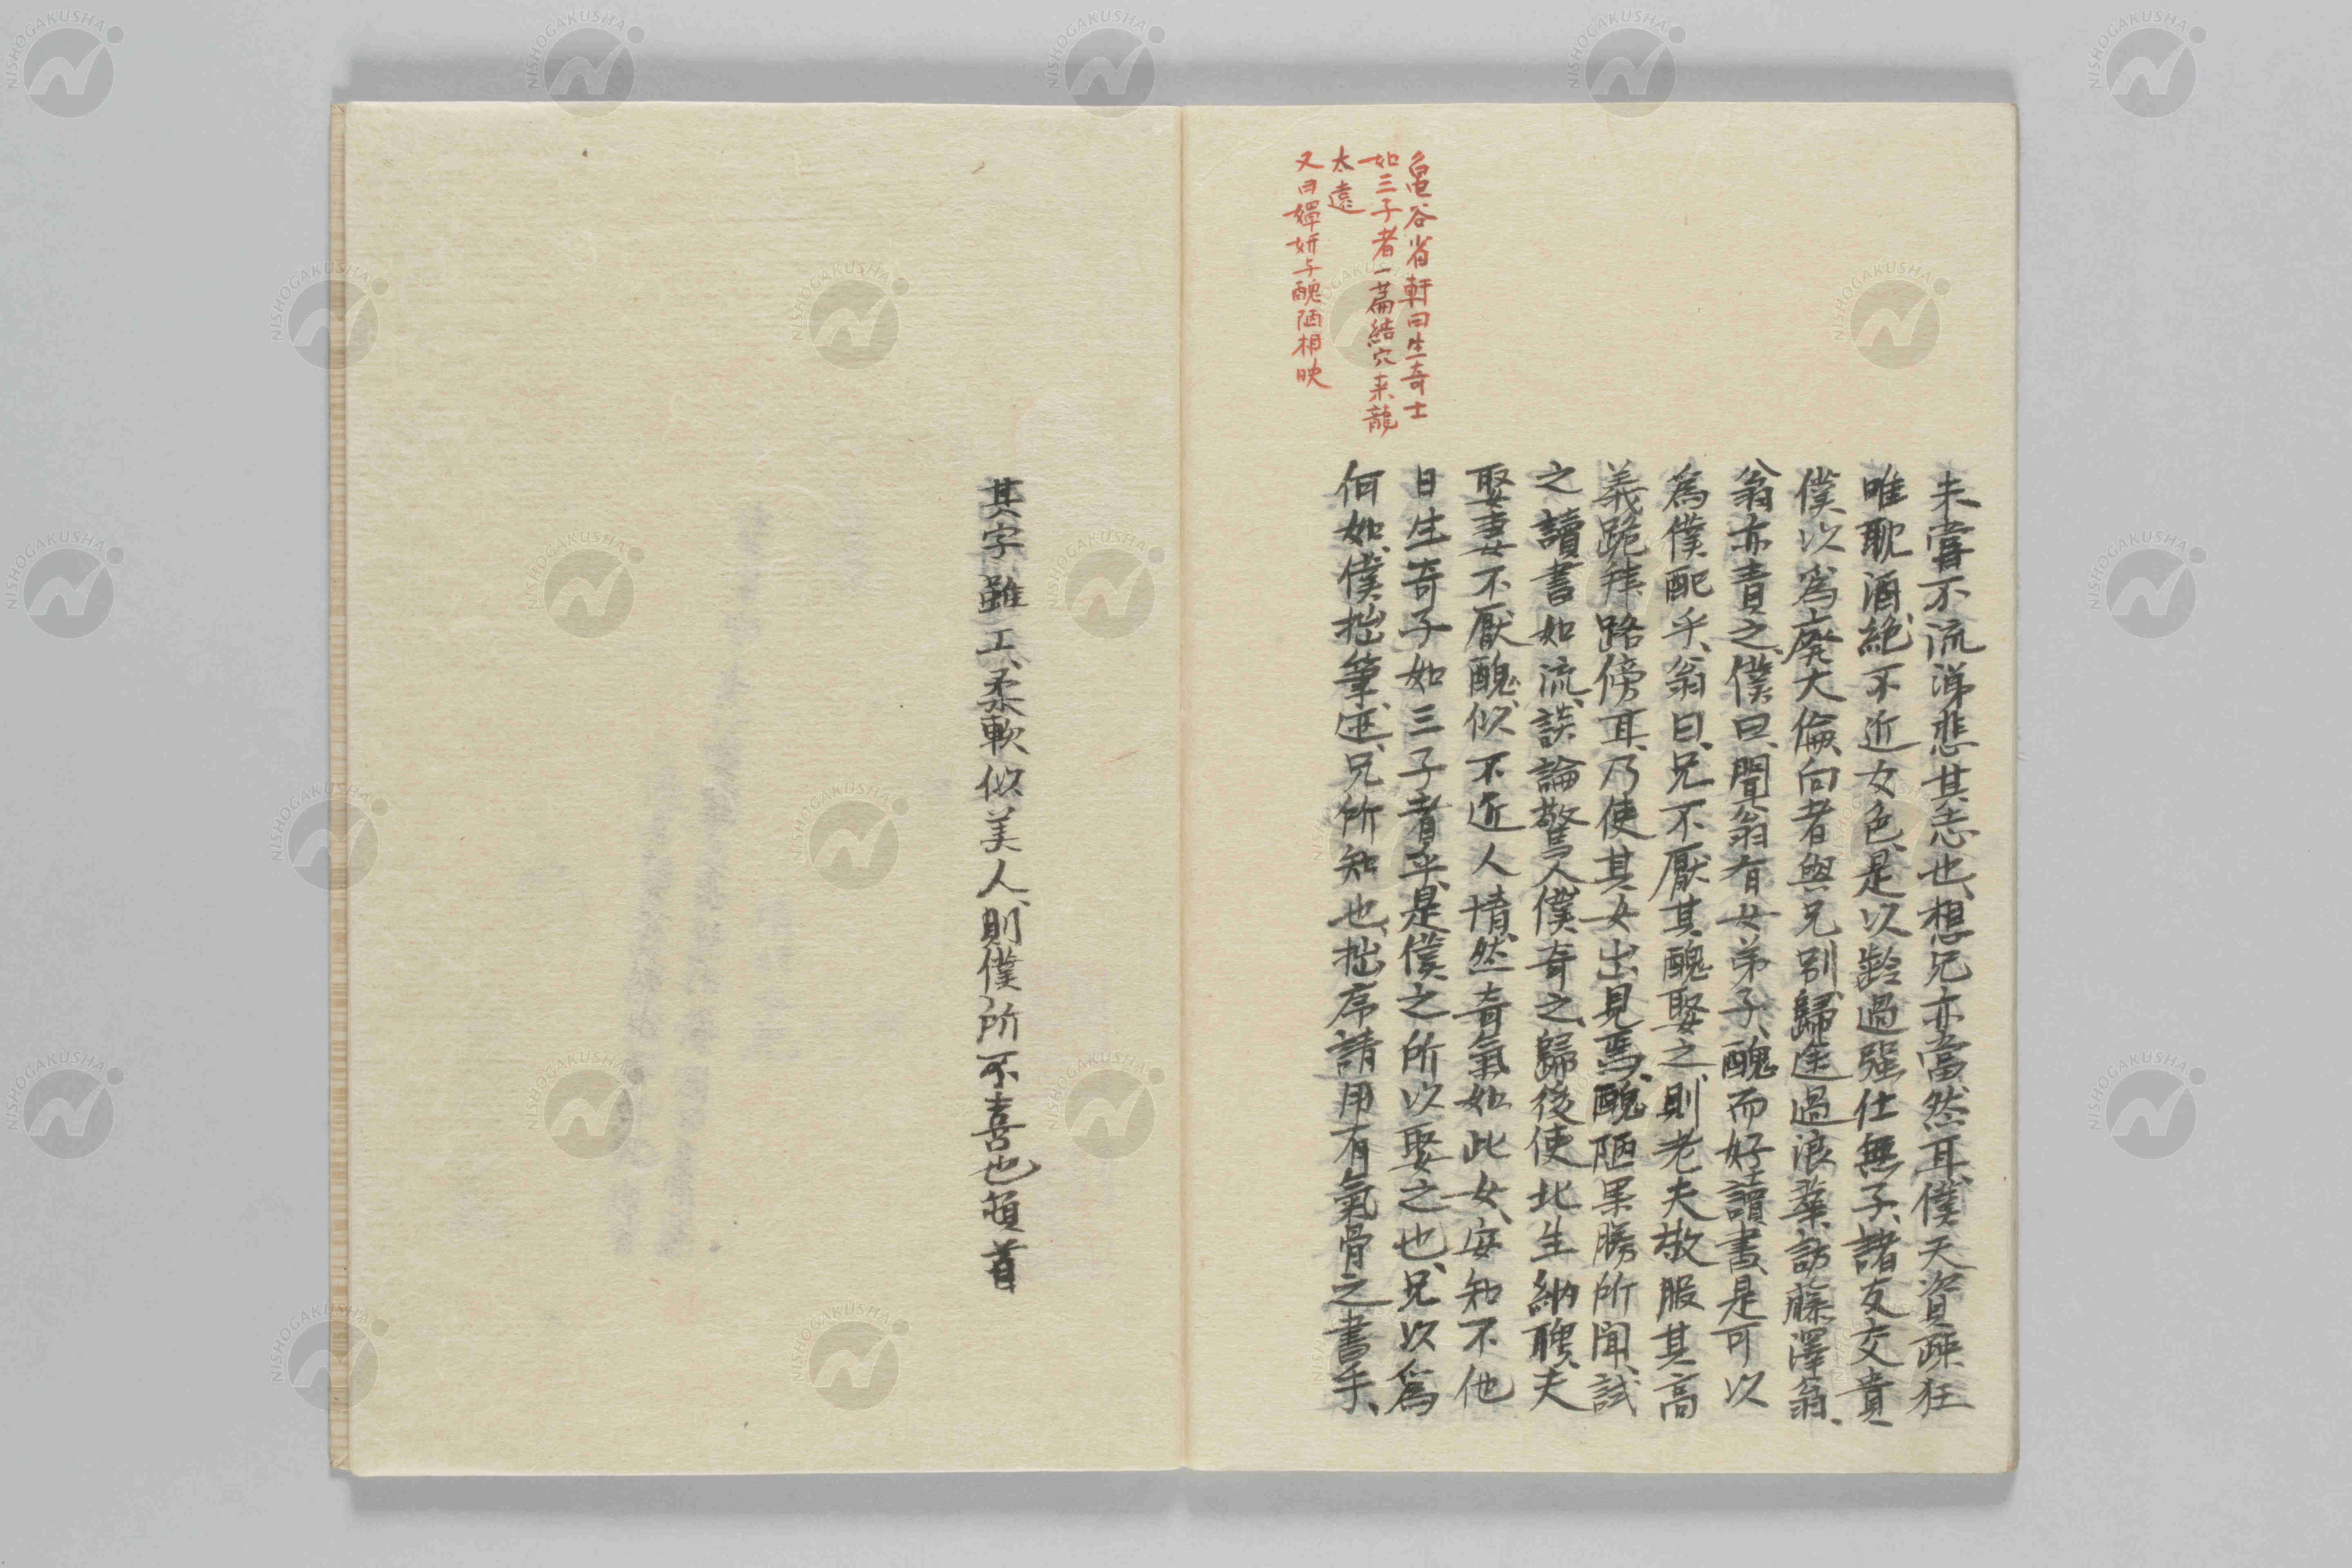 亀谷省軒曰生奇士
如三子者一篇結穴来龍
太遠
又曰嬋妍与醜陋相映
未嘗不流涕悲其志也、想兄亦當然耳、僕天資疎狂
唯耽酒、絶不近女色、是以齡過强仕無子、諸友交責
僕以為廢大倫、向者與兄別、歸途過浪華、訪藤澤翁、
翁亦責之、僕曰、聞翁有女弟子、醜而好讀書、是可以
為僕配乎、翁曰、兄不厭其醜娶之、則老夫敬服其高
義跪拜路傍耳、乃使其女出見焉、醜陋果勝所聞、試
之讀書如流、談論驚人、僕奇之、歸後使北生納聘、夫
娶妻不厭醜、似不近人情、然奇氣如此女、安知不他
日生奇子如三子者乎、是僕之所以娶之也、兄以為
何如、僕拙筆、兄所知也、拙序請用有氣骨之書手、
其字雖工、柔軟似美人、則僕所不喜也頓首
NISHOGAKUSHA